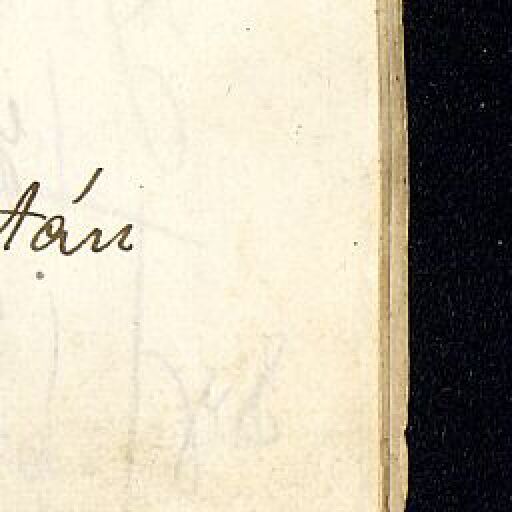 tán